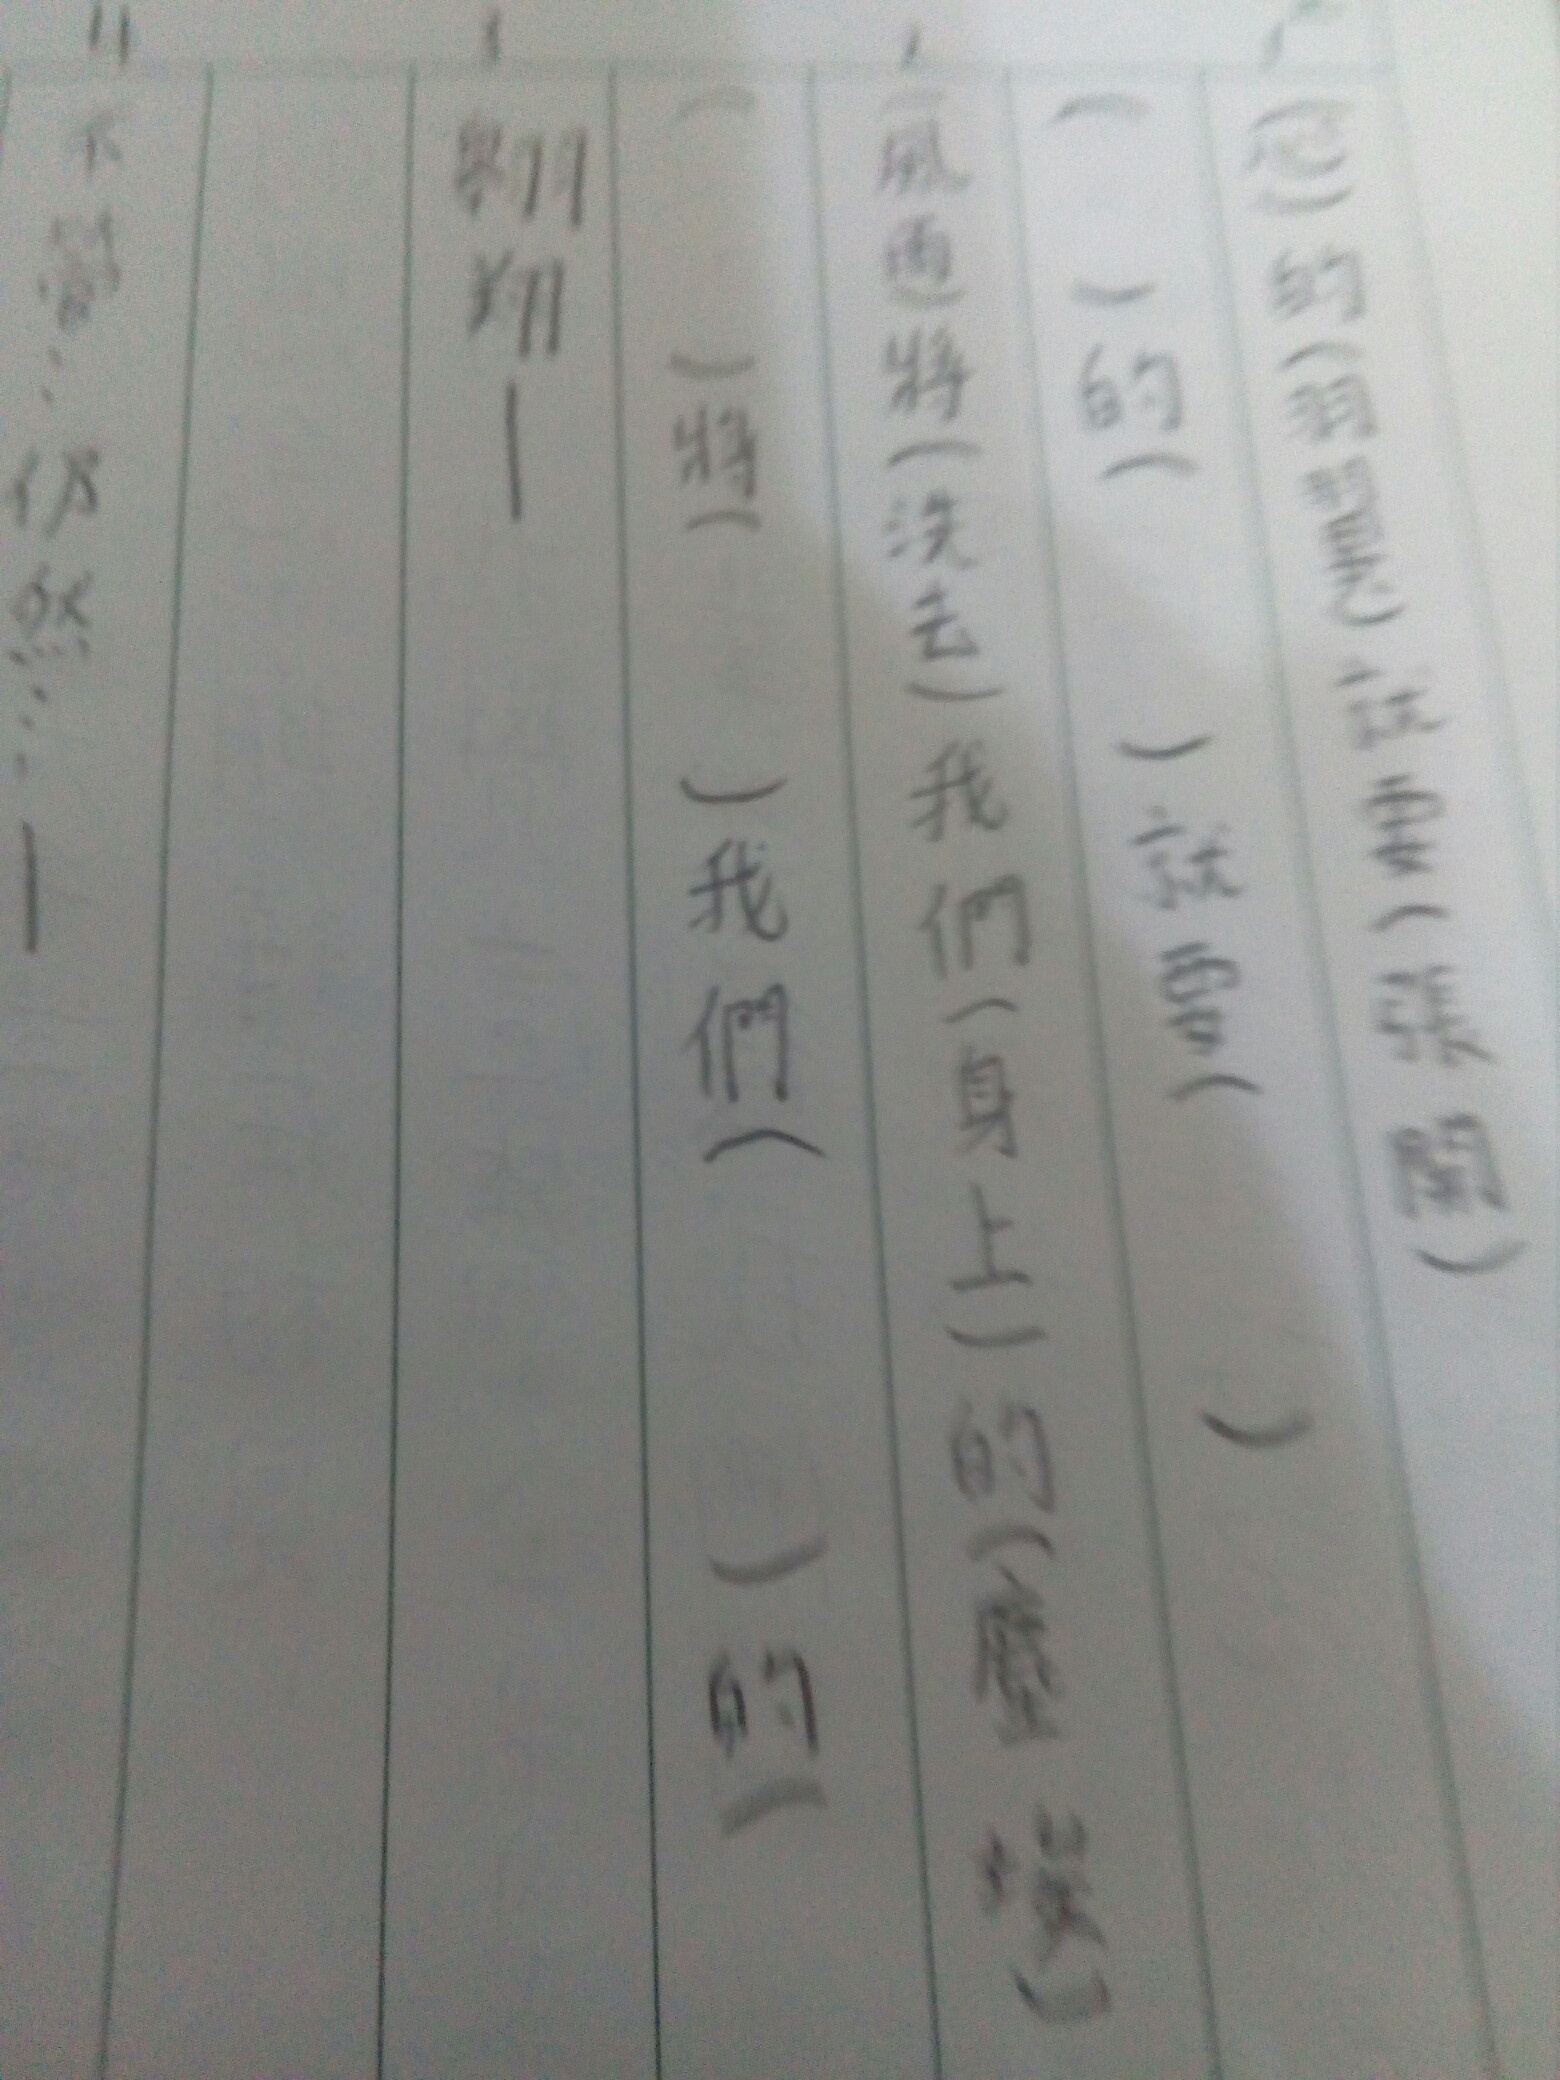 (您)的(羽翼)就要(張開)
(　　)的(　　)就要(　　)
(風雨)將(洗去)我們(身上)的(塵埃)
(　　)將(　　)我們(　　)的(
翱翔—
不管……仍然……—